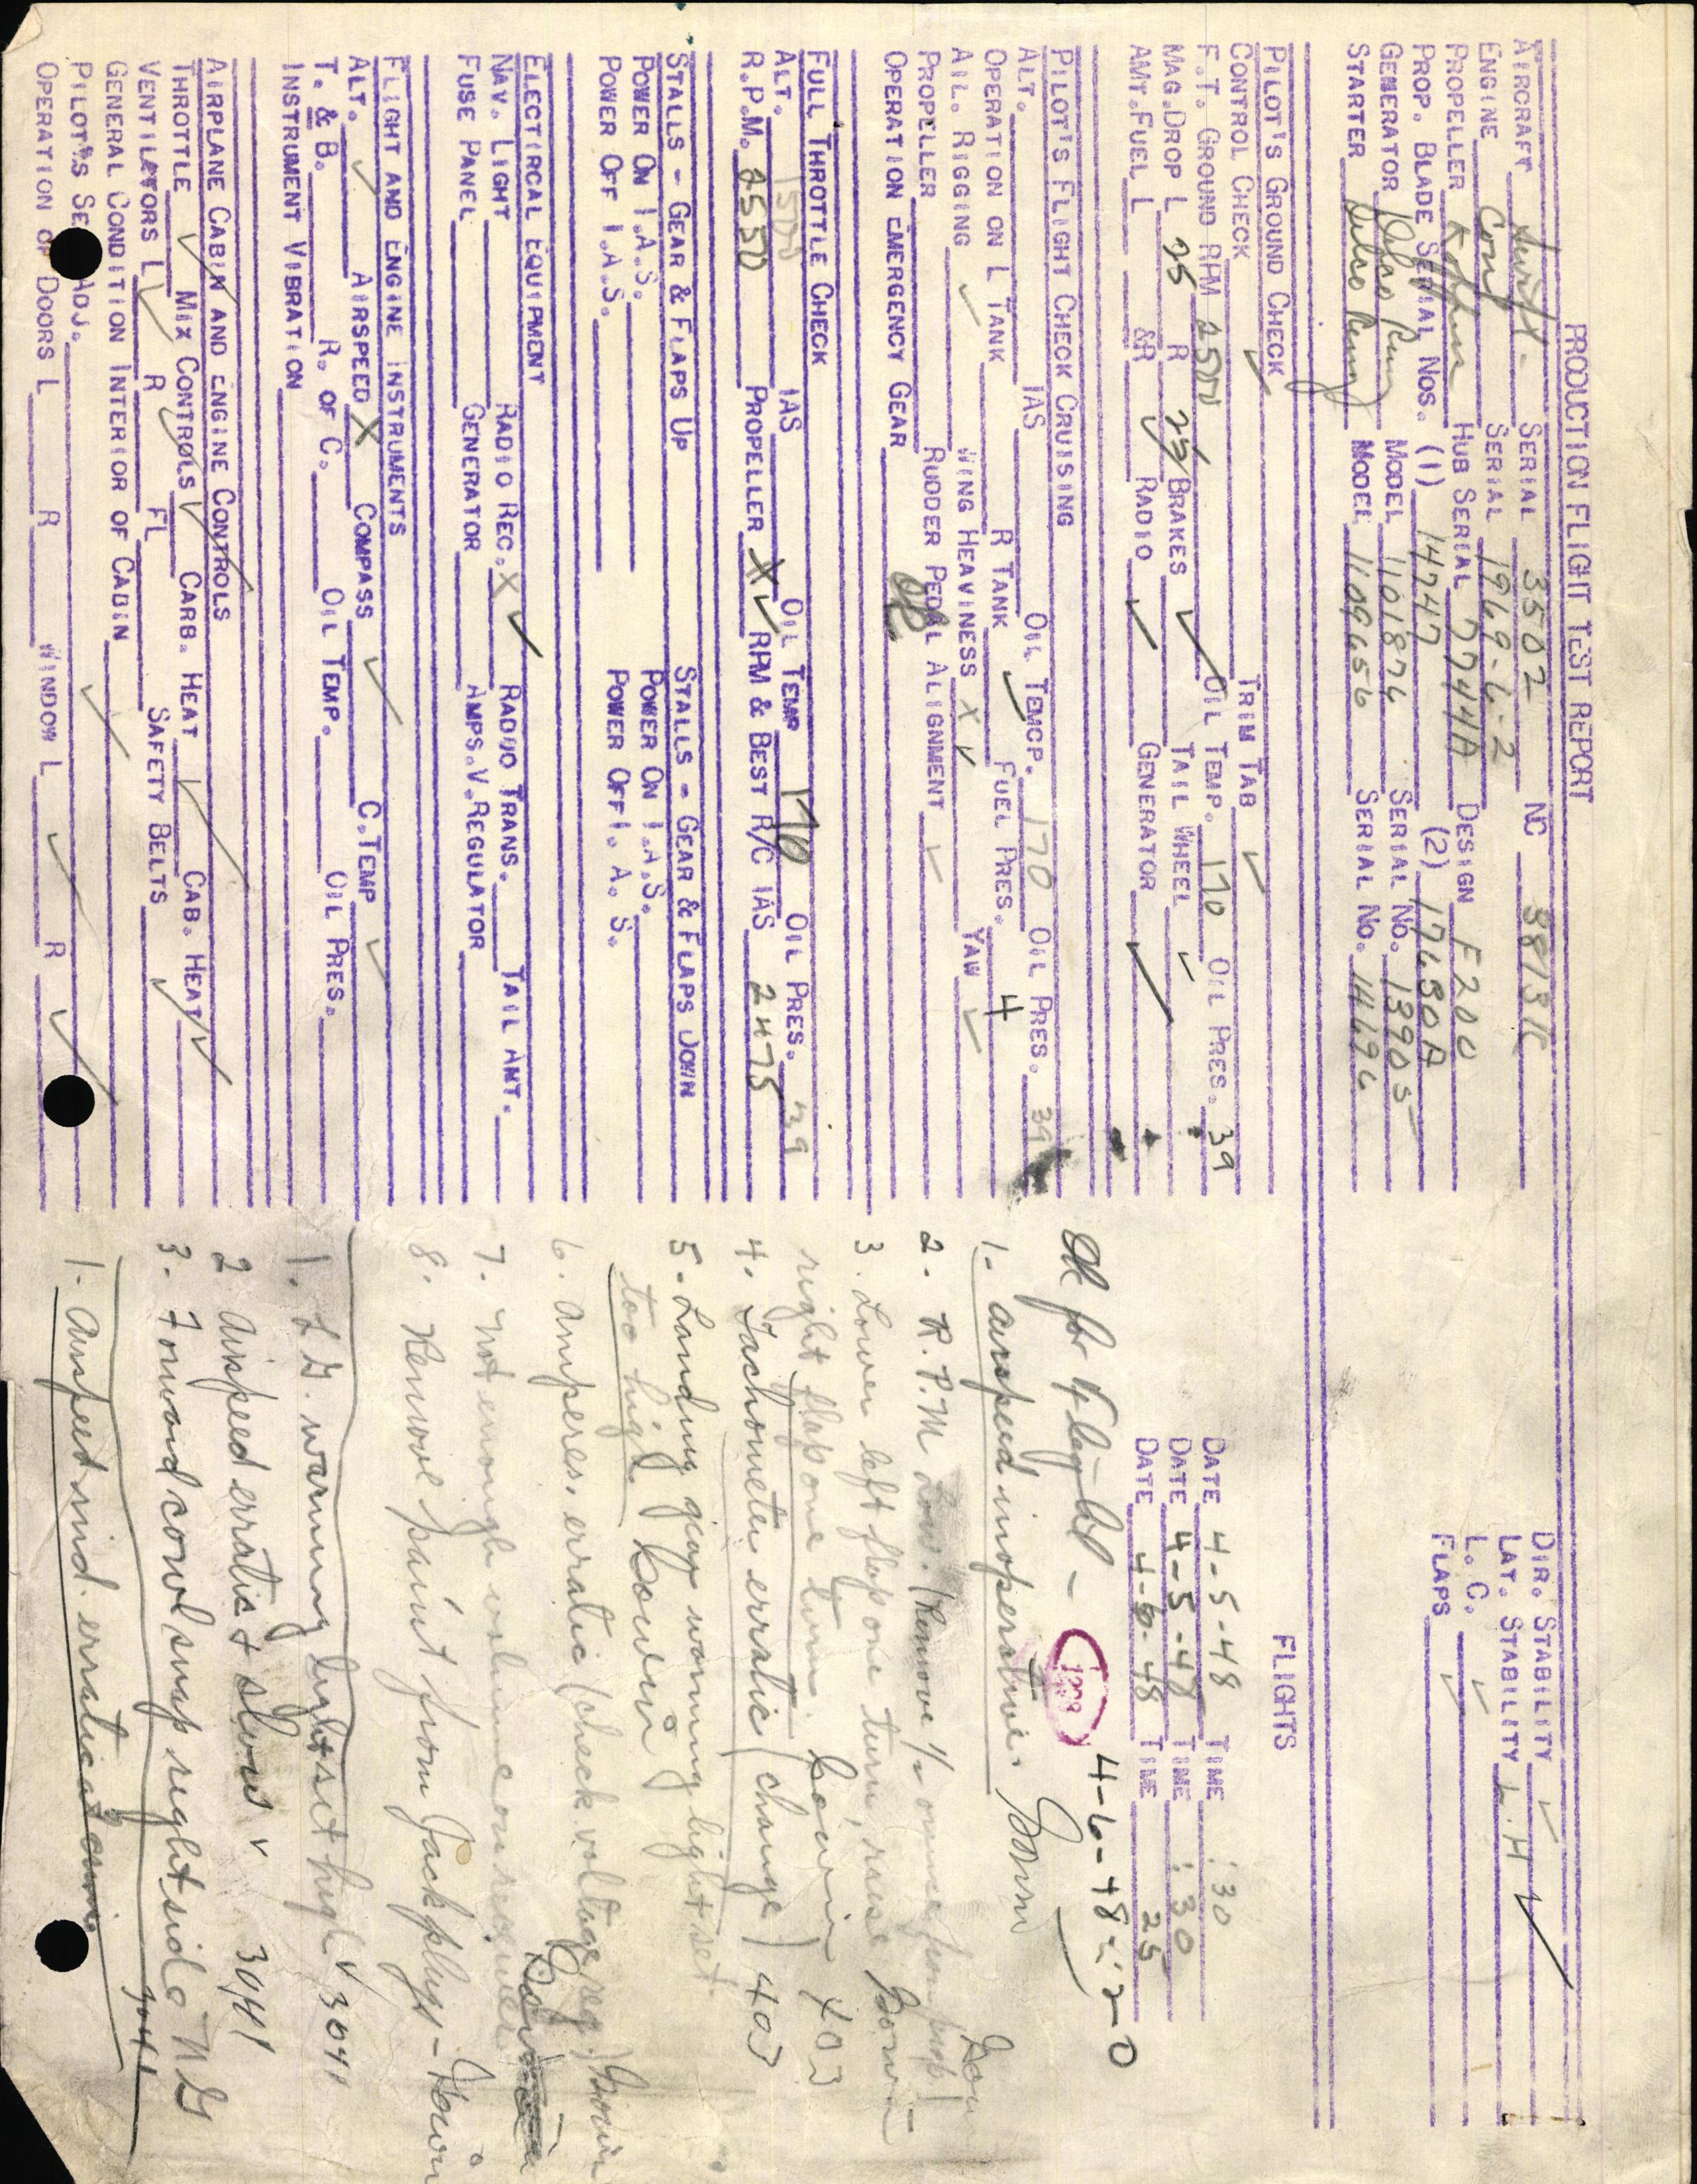 PRODUCTION FLIGHT TEST REPORT
AIRCRAFT Swift - SERIAL 3502 NC 3813K
ENGINE Cont SERIAL 1969-6-2
PROPELLER Koppers HUB SERIAL 77444A DESIGN F200
PROP. BLADE SERIAL NOS. (1) 14747 (2) 17630A
GENERATOR Delco Remy MODEL 1101876 SERIAL NO. 13905
STARTER Delco Remy MODEL 1109656 SERIAL NO. 14696
DIR. STABILITY ✓
LAT. STABILITY L.H ✓
L. C. ✓
FLAPS ✓
PILOT'S GROUND CHECK
CONTROL CHECK ✓ TRIM TAB ✓
F.T. GROUND RPM 2500 OIL TEMP. 170 OIL PRES. 39
MAG. DROP L 25 R 25 BRAKES ✓ TAIL WHEEL ✓
AMT. FUEL L &R ✓ RADIO ✓ GENERATOR ✓
FLIGHTS
DATE 4-5-48 TIME :30
DATE 4-5-48 TIME :30
DATE 4-6-48 TIME 25
4-6-48 :20
PILOT'S FLIGHT CHECK CRUISING
ALT. IAS OIL TEMCP. 170 OIL PRES. 39
OPERATION ON L TANK R TANK ✓ FUEL PRES. 4
AIL. RIGGING ✓ WING HEAVINESS X ✓ YAW ✓
PROPELLER RUDDER PEDAL ALIGNMENT ✓
OPERATION EMERGENCY GEAR OK
FULL THROTTLE CHECK
ALT. 1500 IAS OIL TEMP 170 OIL PRES. 39
R.P.M. 2550 PROPELLER X ✓ RPM & BEST R/C IAS 2475
STALLS - GEAR & FLAPS UP STALLS - GEAR & FLAPS DOWN
POWER ON I.A.S. POWER ON I.A.S.
POWER OFF I.A.S. POWER OFF I. A. S.
ELECTIRCAL EQUIPMENT
NAV. LIGHT RADIO REC. X ✓ RADUO TRANS. TAIL ANT.
FUSE PANEL GENERATOR AMPS.V.REGULATOR
FLIGHT AND ENGINE INSTRUMENTS
ALT. ✓ AIRSPEED X COMPASS ✓ C.TEMP ✓
T. & B. R. OF C. OIL TEMP. OIL PRES.
INSTRUMENT VIBRATION
AIRPLANE CABIN AND ENGINE CONTROLS
THROTTLE ✓ MIX CONTROLS ✓ CARB. HEAT ✓ CAB. HEAT ✓
VENTILATORS L ✓ R FL SAFETY BELTS ✓
GENERAL CONDITION INTERIOR OF CABIN ✓
PILOT'S SE ADJ.
OPERATION OF DOORS L R WINDOW L ✓ R ✓
OK for flight -
1. airspeed inoperative.
2. R.P.M low. (Remove 1/2 ounce
3. Lower left flap one turn, raise
right flap one turn. 403
4. Tachometer erratic (change) 403
5. Landing gear warning light set
too high
6. Amperes. erratic (check voltage reg.)
7. Not enough volume on receiver
8. Remove paint from Jack plugs -
1. L G. warning light set high ✓ 3041
2 Airspeed erratic & slow ✓ 3041
3. Forward cowl snap right side NG
3041
1. Airspeed ind. erratic